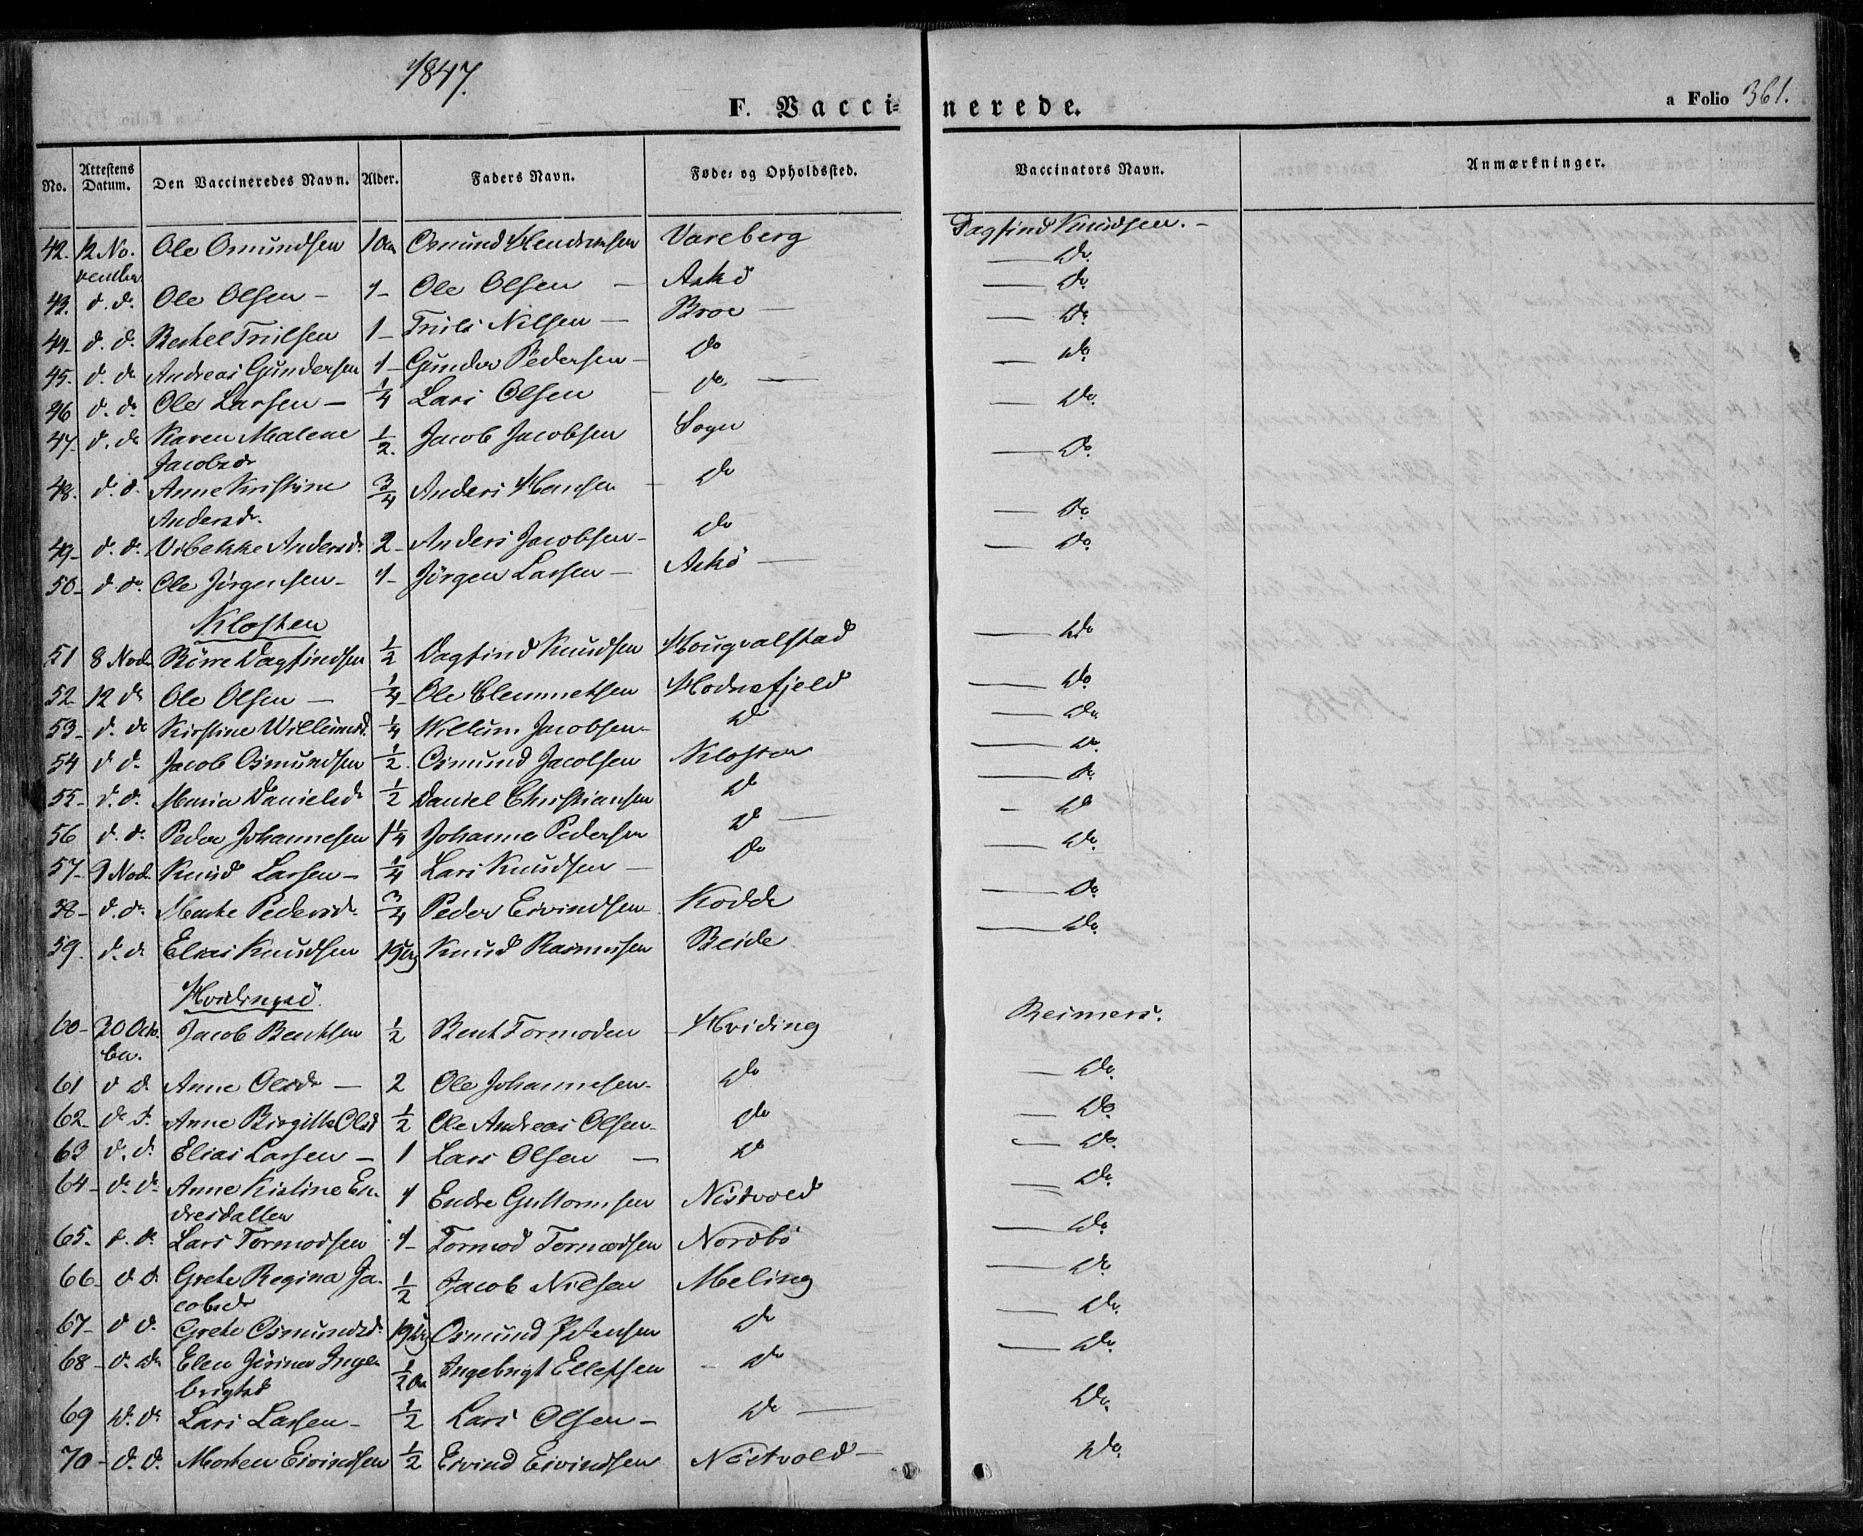 1847.
F. Vaccinerede.
a Folio 361.
No. Attestens Datum. Den Vaccineredes Navn. Alder. Faders Navn. Føde- og Opholdssted. Vaccinators Navn. Anmærkninger.
42. 12 No- Ole Osmundsen 1 Osmund Vareberg Dagfind Knudsen. -
vember Do.
43. d. d. Ole Olsen - 1- Ole Olsen - Askö Do.
44- d. d. Berthel Trulsen 1- Truls Nilsen - Broe - Do.
45. d. do Andreas Gundersen 1- Gunder Pedersen - do Do.
46 d. do. Ole Larsen - 1/4 Lars Olsen do. - Do.
47. d. do Karen Malene 1/2. Jacob Jacobsen Sogn Do.
Jacobsdr
48. d. d. Anne Kristine 3/4 Anders Hansen - do
Andersdr. Do.
49- d. d. Vibekke Andersd. 2- Anders Jacobsen - do Do.
50- d do Ole Jörgensen - 1- Jörgen Larsen - Askö -
Klosten
51 8 Novbr Börre Dagfindsen 1/2 Dagfind Knudsen Hougvalstad Do
52- 12 do Ole Olsen - 1/4 Ole Clemmetsen Hodnefjeld Do.
53- d. do Kirstine Willumsd. 1/4 Willum Jacobsen - Do Do.
54 d d. Jacob Osmundsen 1/2. Osmund Jacobsen Kloster Do.
55- d. d. Maria Danielsdr 1/2 Daniel Christiansen Do Do.
56 d. d. Peder Johannesen 1 1/4 Johannes Pedersen Do - Do
57- 9 Nov. Knud Larsen - 1/4 Lars Knudsen - Do Do.
58- d. do. Marte Pedersdr 3/4 Peder Eivindsen Kodde Do.
59. d. d. Elias Knudsen Knud Rasmusen Beide Do.
Hvidingsö.
60- 20 Octo- Jacob Bentsen 1/2 Bent Tormodsen - Hviding Reimers.
ber.
61 d d. Anne Olsdr - 2 Ole Johannesen - Do Do.
62- d. d. Anne Birgitte Olsd 1/2 Ole Andreas Olsen - Do Do.
63 d. d. Elias Larsen - 1 Lars Olsen - Do Do.
64- d. d. Anne Kistine En- 1 Endre Guttormsen Nöstvold Do.
dresdatter
65- d. d. Lars Tormodsen 1- Tormod Tormodsen Nordbö Do.
66- d d. Grete Regina Ja- 1/2 Jacob Nilsen Meling Do.
cobsdr
67- d d. Grete Osmundsd. Osmund Do Do.
68- d. do Elen Jörine Inge- 1/2 Ingebrigt Ellefsen - Do Do.
brigtsd
69 d. d. Lars Larsen - 1/2 Lars Olsen - Do - Do.
70- d. d. Morten Eivindsen 1/2 Eivind Eivindsen Nöstvold - Do.